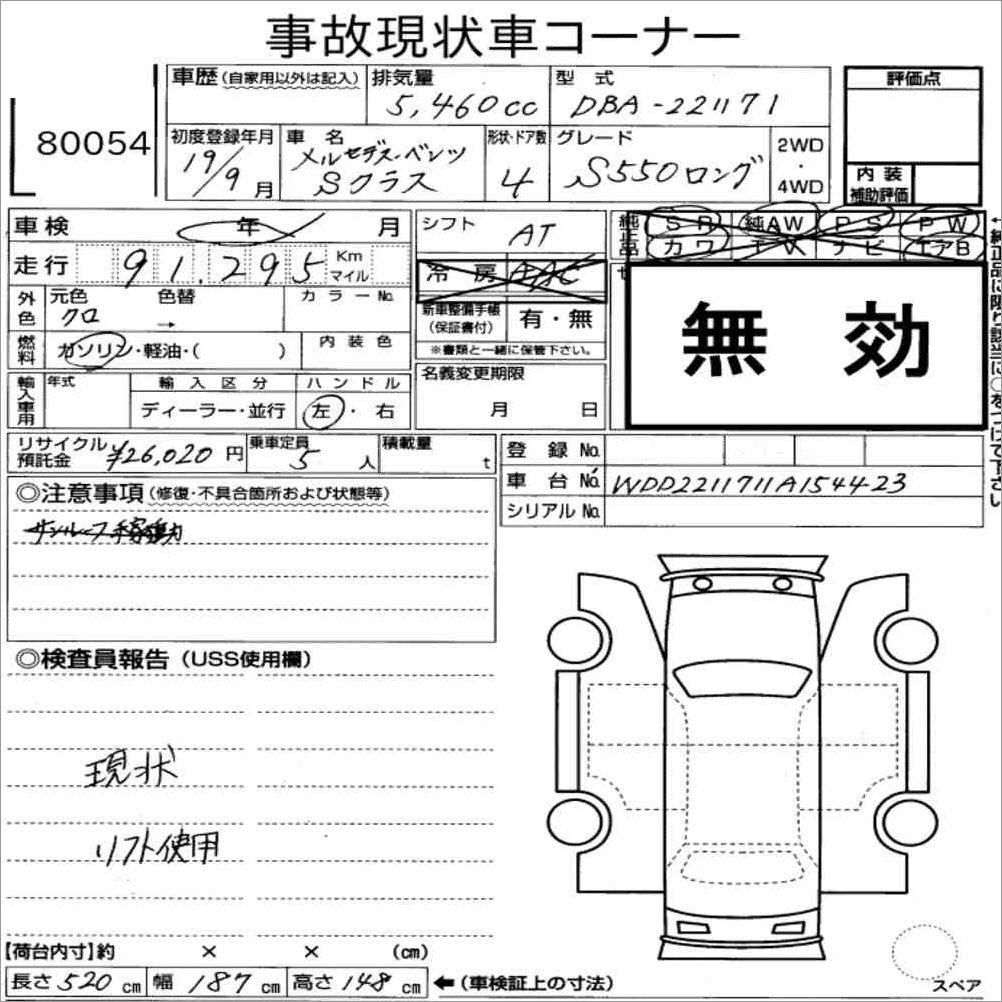 事故現状車コーナー
80054
車歴(自家用以外は記入)
排気量
5,460cc
型式
DBA-221171
評価点
初度登録年月
19/9月
車名
メルセデス・ベンツ
Sクラス
形状・ドア数
4
グレード
S550ロング
2WD
・
4WD
内装
補助評価
車検 年 月
シフト
AT
純正品
SR 純AW PS PW
カワ TV ナビ エアB
走行 91,295 Km
マイル
冷房 AAC
外色
元色
クロ
色替
→
カラーNo.
新車整備手帳
(保証書付)
有・無
※書類と一緒に保管下さい。
無効
←純正品に限り該当に○をつけて下さい
燃料
ガソリン・軽油・( )
内装色
名義変更期限
月 日
輸入車用
年式
輸入区分
ディーラー・並行
ハンドル
左・右
リサイクル
預託金
¥26,020円
乗車定員
5人
積載量
t
登録No.
車台No.
WDD2211711A154423
シリアルNo.
◎注意事項(修復・不具合箇所および状態等)
サンルーフ
◎検査員報告(USS使用欄)
現状
リフト使用
【荷台内寸】約 × × (cm)
長さ520cm 幅187cm 高さ148cm ←(車検証上の寸法)
スペア